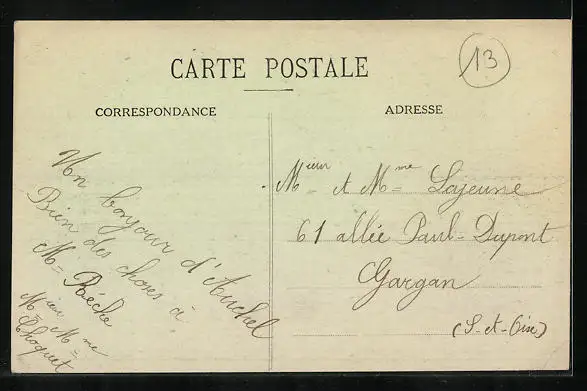 CARTE POSTALE
13
CORRESPONDANCE
ADRESSE
Un bonjour d'Auchel
Bien des choses à
M= Béche
M=ieur M=me
Choquet
M=ieur et M=me Lajeune
61 allée Paul-Dupont
Gargan
(S-et-Oise)